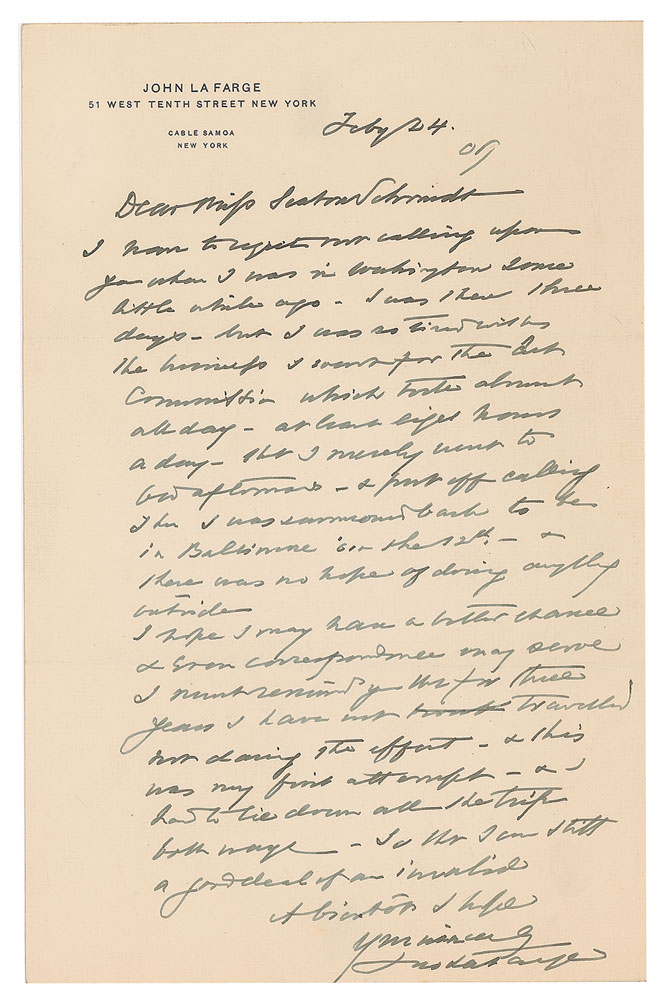 JOHN LA FARGE
51 WEST TENTH STREET NEW YORK
CABLE SAMOA
NEW YORK
Feby 24.
09
Dear Miss Seaton Schmidt
I have to regret not calling upon
you when I was in Washington some
little while ago - I was there three
days - but I was so tired with
the business I went for the Art
Commission which took almost
all day - at least eight hours
a day - that I merely went to
bed afterwards - & put off calling
Then I was summoned back to be
in Baltimore on the 12th - &
there was no hope of doing anything
outside
I hope I may have a better chance
& even correspondence may serve
I must remind you that for three
years I have not travelled
not daring the effort - & this
was my first attempt - & I
had to lie down all the trip
both ways - So that I am still
a good deal of an invalid
A bientôt I hope
Yrs sincerely
Jno La Farge